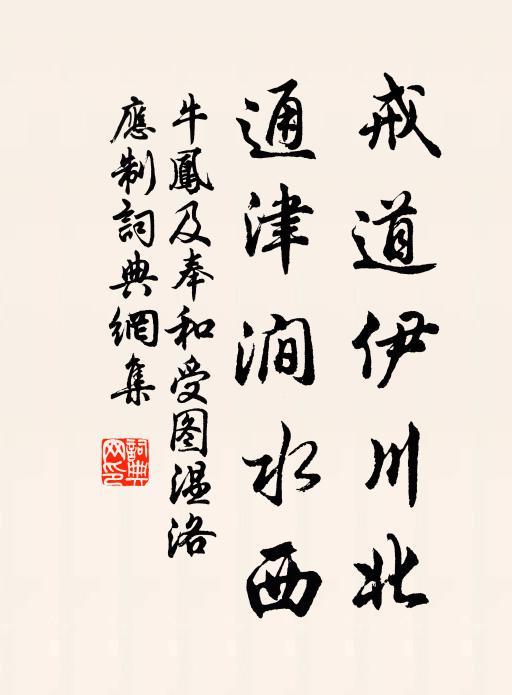 戒道伊川北
通津澗水西
牛鳳及奉和受图温洛
應制詞典網集
詞典网印